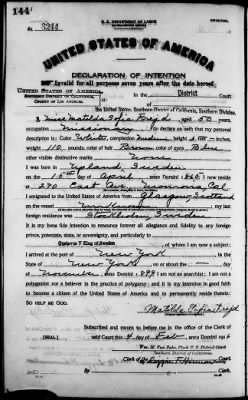 144
U. S. DEPARTMENT OF LABOR
ORIGINAL
No. 3244
UNITED STATES OF AMERICA
DECLARATION OF INTENTION
Invalid for all purposes seven years after the date hereof
UNITED STATES OF AMERICA,
SOUTHERN DISTRICT OF CALIFORNIA,
COUNTY OF LOS ANGELES.
In the District Court
of the United States, Southern District of California, Southern Division.
I, Miss Matilda Sofia , aged 50 years,
occupation Missionary, do declare on oath that my personal
description is: Color White, complexion Medium, height 5 feet inches,
weight 110 pounds, color of hair Brown, color of eyes Blue
other visible distinctive marks None
I was born in , Sweden
on the 15th day of April, anno Domini ; I now reside
at 270 East Ave, Monrovia, Cal
I emigrated to the United States of America from Glasgow, Scotland
on the vessel ; my last
foreign residence was Stockholm, Sweden
It is my bona fide intention to renounce forever all allegiance and fidelity to any foreign
prince, potentate, state, or sovereignty, and particularly to
Gustavus V King of Sweden, of whom I am now a subject;
I arrived at the port of New York, in the
State of New York on or about the — day
of November, anno Domini ; I am not an anarchist; I am not a
polygamist nor a believer in the practice of polygamy; and it is my intention in good faith
to become a citizen of the United States of America and to permanently reside therein:
SO HELP ME GOD.
Matilda Sofia
Subscribed and sworn to before me in the office of the Clerk of
[SEAL.] said Court this 4 day of Feb, anno Domini 191
Wm. M. Van Dyke, Clerk U. S. District Court
Southern District of California.
Clerk of